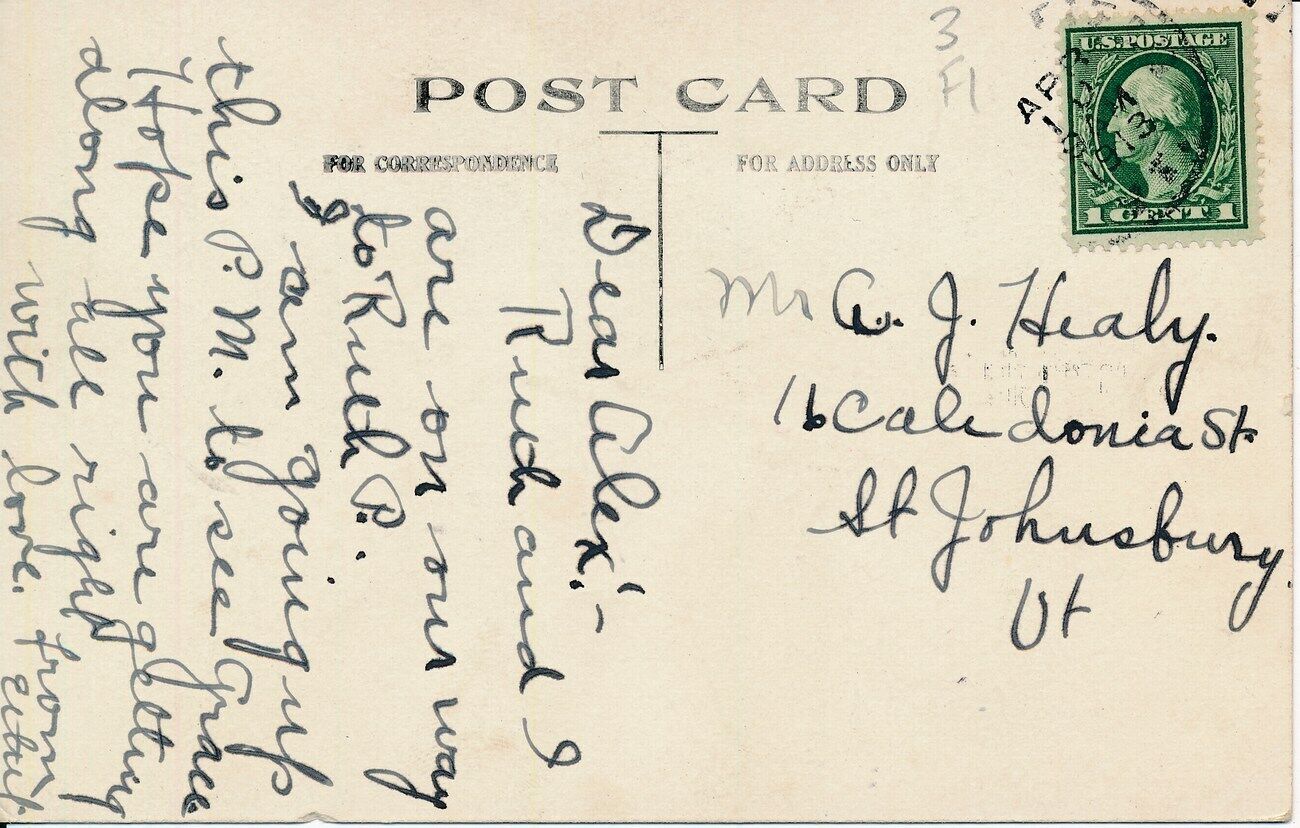 POST CARD
3
Fl
FOR CORRESPONDENCE
FOR ADDRESS ONLY
U.S. POSTAGE
1 CENT 1
APR
Dear Alex! -
Ruth and I
are on our way
to Ruth P.
I am going up
this P. M. to see Grace
Hope you are getting
along all right
with love. from
Mr A. J. Healy.
16 Caledonia St.
St Johnsbury
Vt